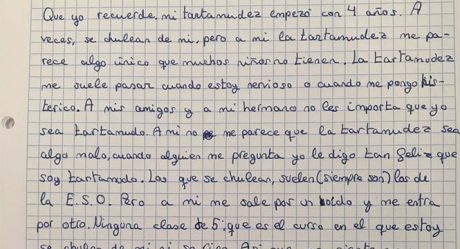 Que yo recuerde, mi tartamudez empezó con 4 años. A
veces, se chulean de mi, pero a mi la tartamudez me pa-
rece algo único que muchos niños no tienen. La tartamudez
me suele pasar cuando estoy nervioso o cuando me pongo his-
terico. A mis amigos y a mi hermano no les importa que yo
sea tartamudo. A mi no me parece que la tartamudez sea
algo malo, cuando alguien me pregunta yo le digo tan feliz que
soy tartamudo. Los que se chulean, suelen (siempre son) los de
la E.S.O. Pero a mi me sale por un oído y me entra
por otro. Ninguna clase de 5º, que es el curso en el que estoy
se chulean de mi ni se